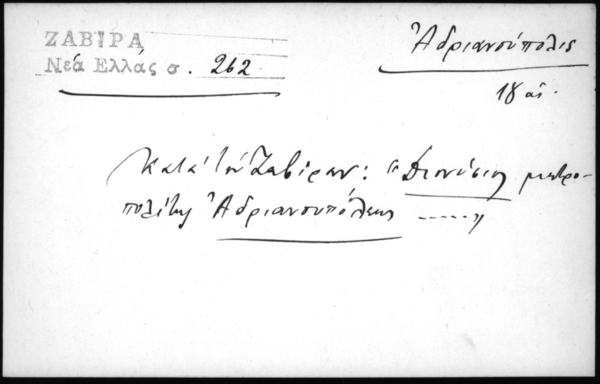 ΖΑΒΙΡΑ
Νεά Ελλάς σ. 262.
Ἀδριανούπολις
18 αἰ.
Κατὰ τὸν Ζαβίραν: "Διονύσιος μητρο-
πολίτης Ἀδριανουπόλεως -----"